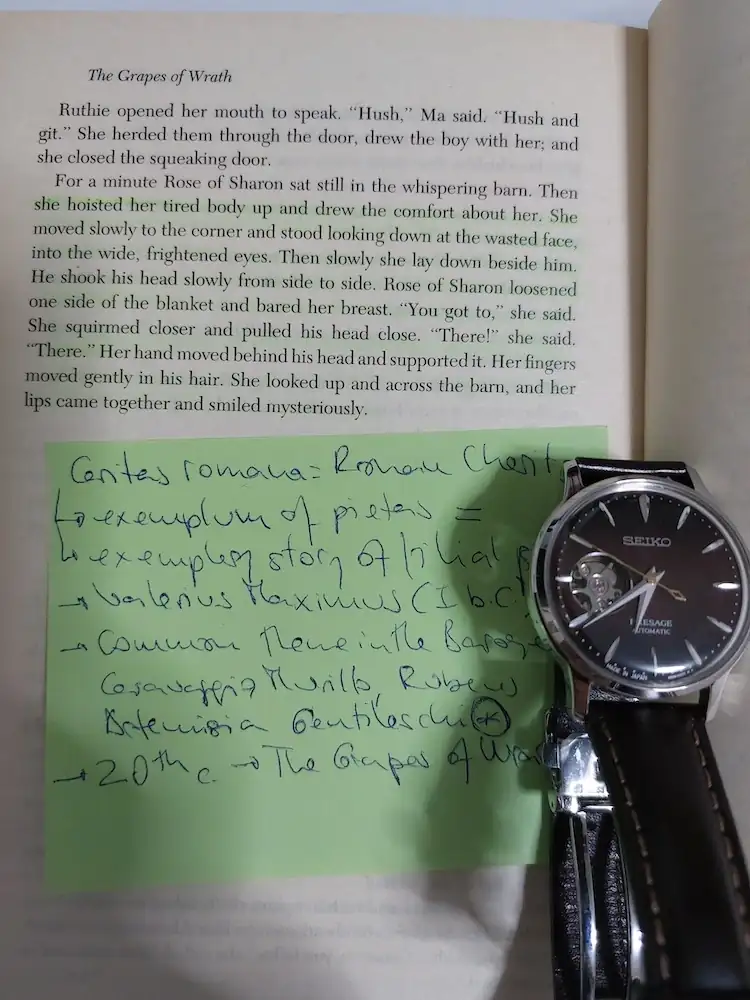 The Grapes of Wrath
Ruthie opened her mouth to speak. “Hush,” Ma said. “Hush and
git.” She herded them through the door, drew the boy with her; and
she closed the squeaking door.
For a minute Rose of Sharon sat still in the whispering barn. Then
she hoisted her tired body up and drew the comfort about her. She
moved slowly to the corner and stood looking down at the wasted face,
into the wide, frightened eyes. Then slowly she lay down beside him.
He shook his head slowly from side to side. Rose of Sharon loosened
one side of the blanket and bared her breast. “You got to,” she said.
She squirmed closer and pulled his head close. “There!” she said.
“There.” Her hand moved behind his head and supported it. Her fingers
moved gently in his hair. She looked up and across the barn, and her
lips came together and smiled mysteriously.
Caritas romana = Roman Charit
↳ exemplum of pietas =
↳ exemplary story of filial p
→ Valerius Maximus (I b.C.)
→ Common theme in the Baroq
Caravaggio, Murillo, Rubens
Artemisia Gentileschi *
→ 20th c. → The Grapes of Wra
SEIKO
PRESAGE
AUTOMATIC
MADE IN JAPAN